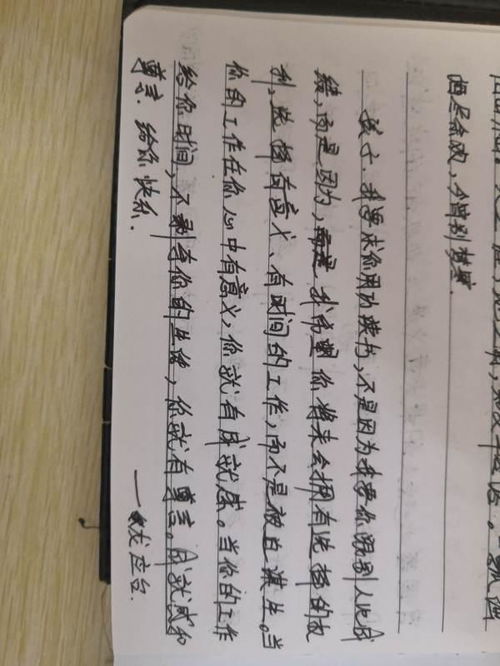 酒尽余欢,今宵别梦寒.
孩子,我要求你用功读书,不是因为我要你跟别人比成
绩,而是因为,我希望你将来会拥有选择的权
利,选择有意义、有时间的工作,而不是被迫谋生。当
你的工作在你心中有意义,你就有成就感。当你的工作
给你时间,不剥夺你的生活,你就有尊严。成就感和
尊严.给你快乐.
——龙应台.